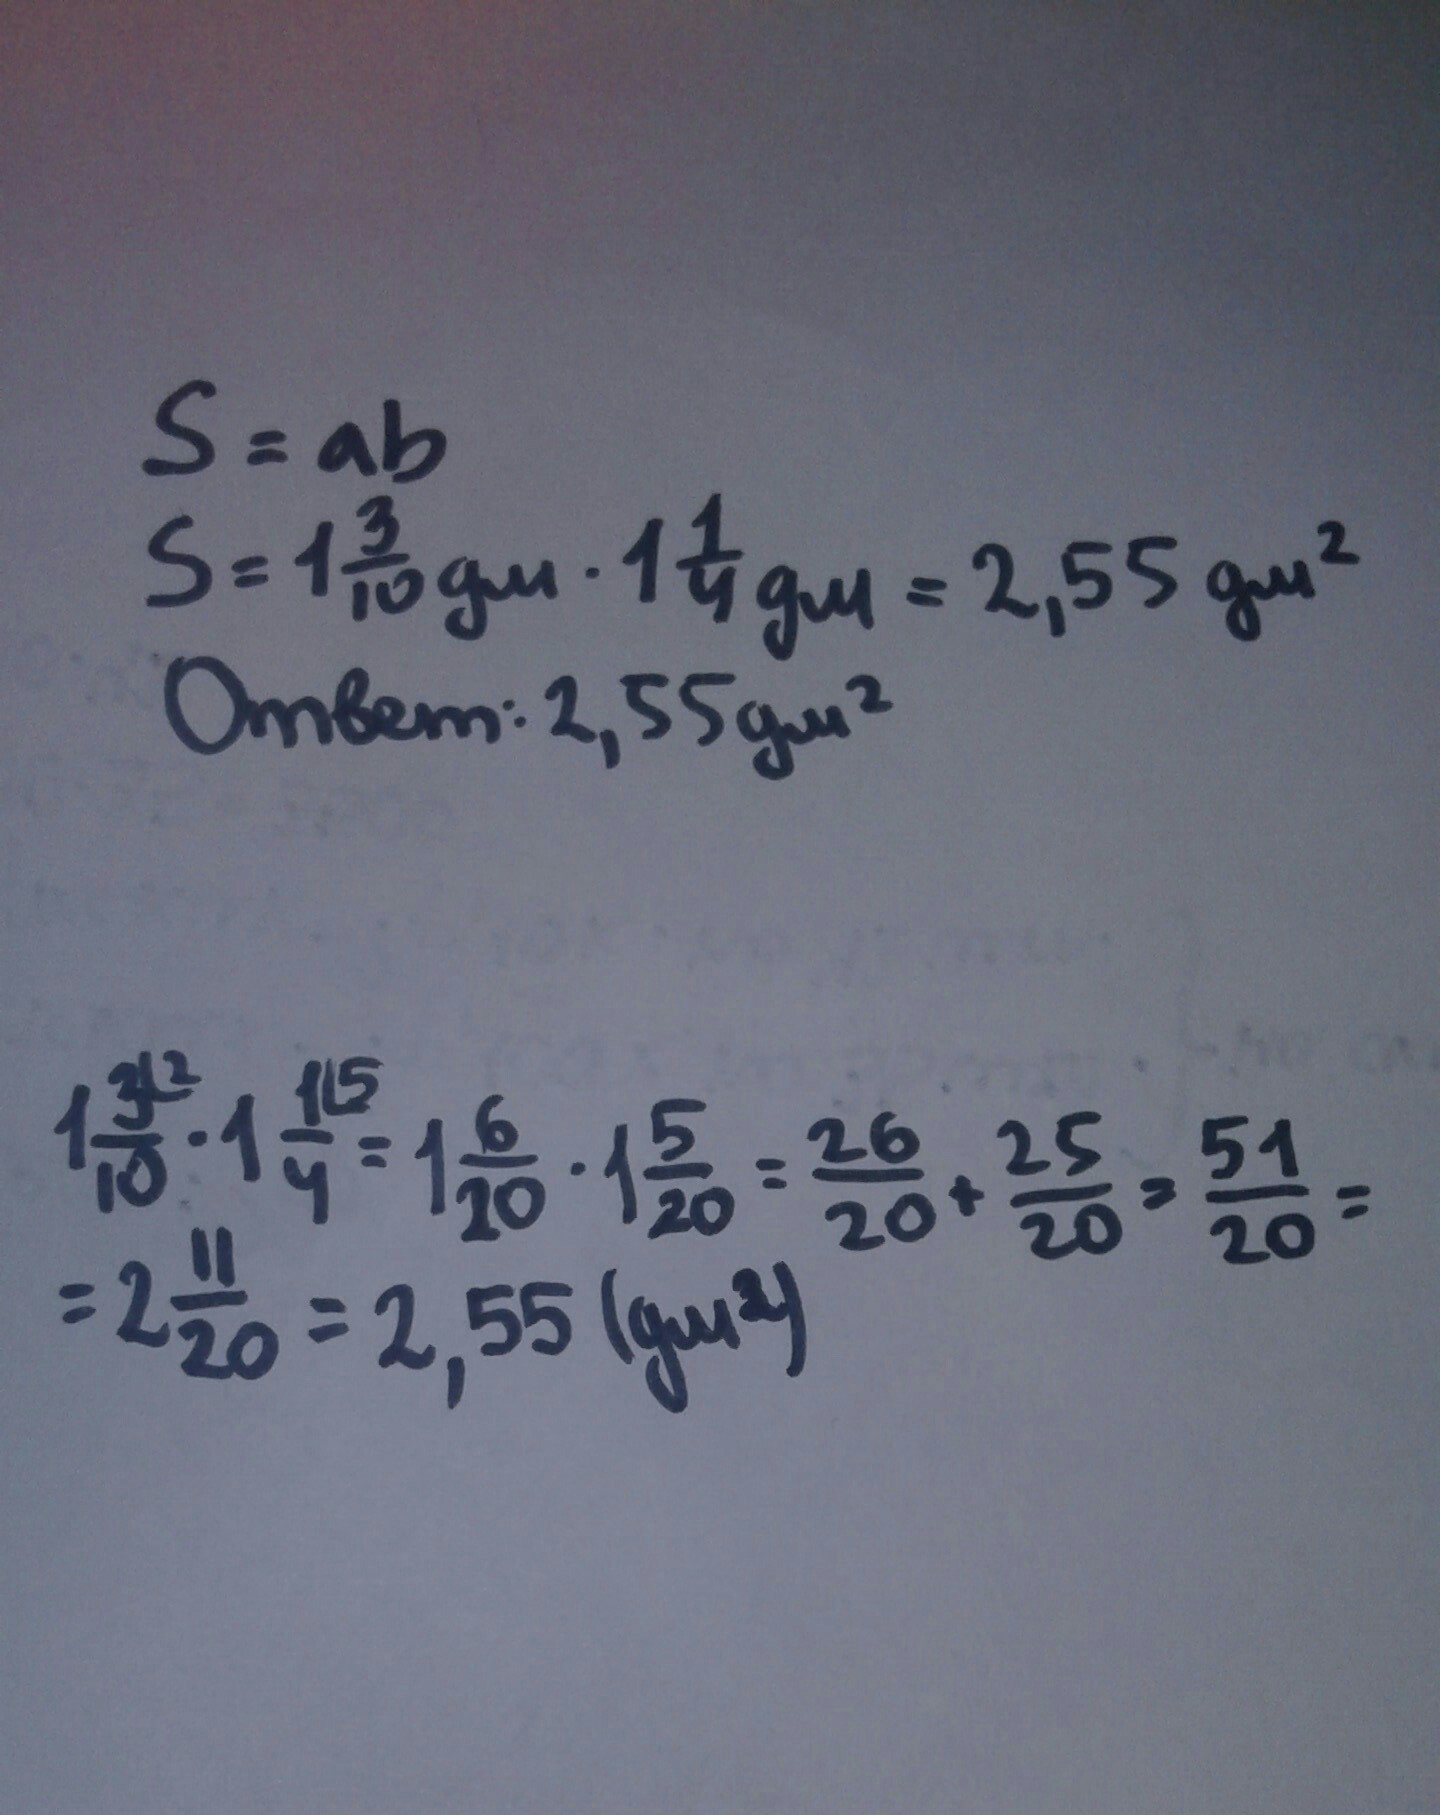 S = ab
S = 1 3/10 дм · 1 1/4 дм = 2,55 дм²
Ответ: 2,55 дм²
1 3⌊2/10 · 1 1⌊5/4 = 1 6/20 · 1 5/20 = 26/20 + 25/20 = 51/20 =
= 2 11/20 = 2,55 (дм²)